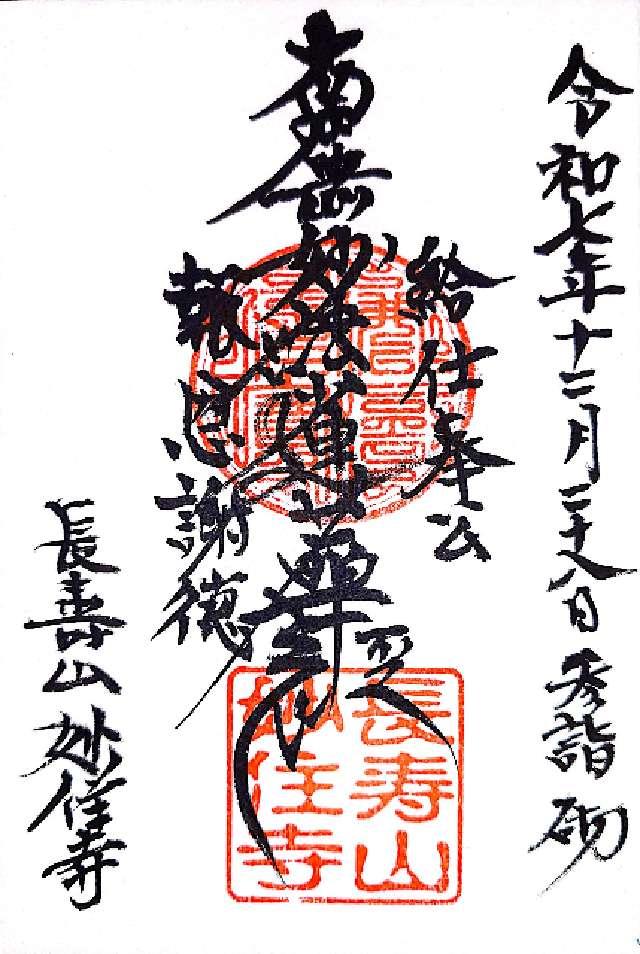 令和七年十二月二十八日 参詣 砌
給仕奉公
南無妙法蓮華経
報恩謝徳
長寿山妙住寺
長寿山
妙住寺